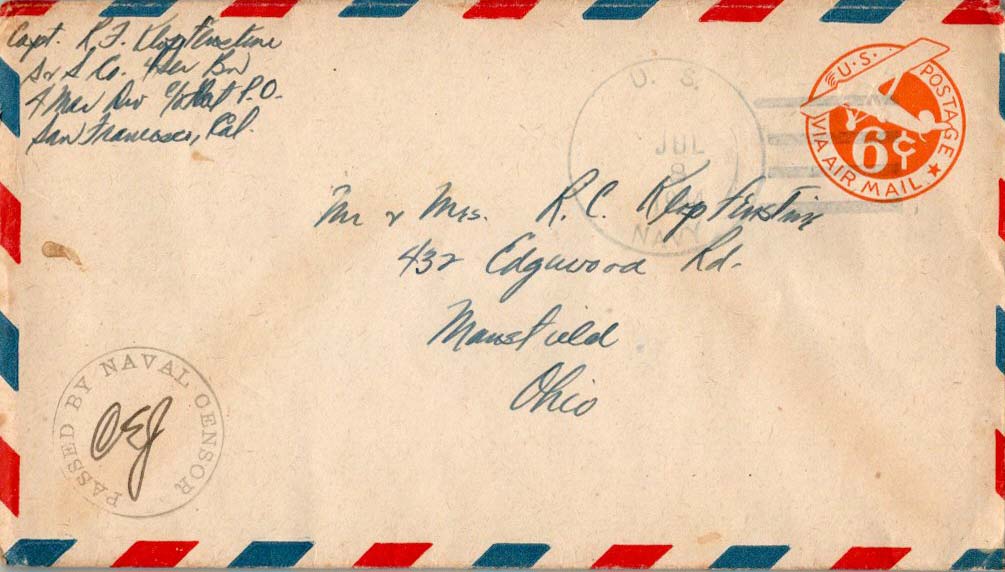 Capt. R.F. Klopfenstine
S & S Co. 4 Ser Bn
4 Mar Div c/o Flt P.O.
San Francisco, Cal.
U. S.
JUL
8
NAVY
U.S. POSTAGE
6¢
VIA AIR MAIL
Mr & Mrs. R.C. Klopfenstine
432 Edgewood Rd.
Mansfield
Ohio
PASSED BY NAVAL CENSOR
OEJ